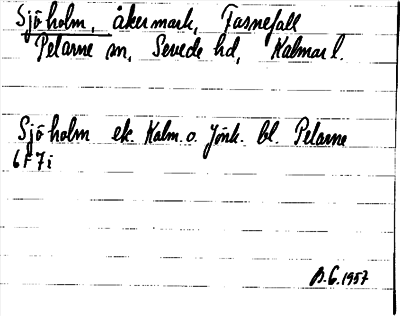 Sjöholm, åkermark, Fasnefall
Pelarne sn, Sevede hd, Kalmar l.
Sjöholm ek. Kalm. o. Jönk. bl. Pelarne
6F7i
B.G. 1957